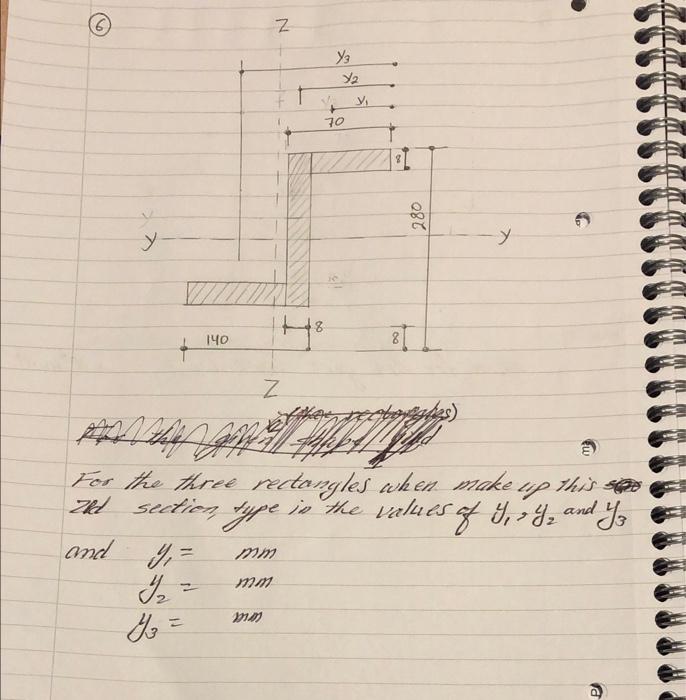 6
Z
y3
y2
y1
70
8
280
y
y
8
8
140
Z
(three rectangles)
For the three rectangles when make up this
Zed section, type in the values of y1, y2 and y3
and y1 = mm
y2 = mm
y3 = mm